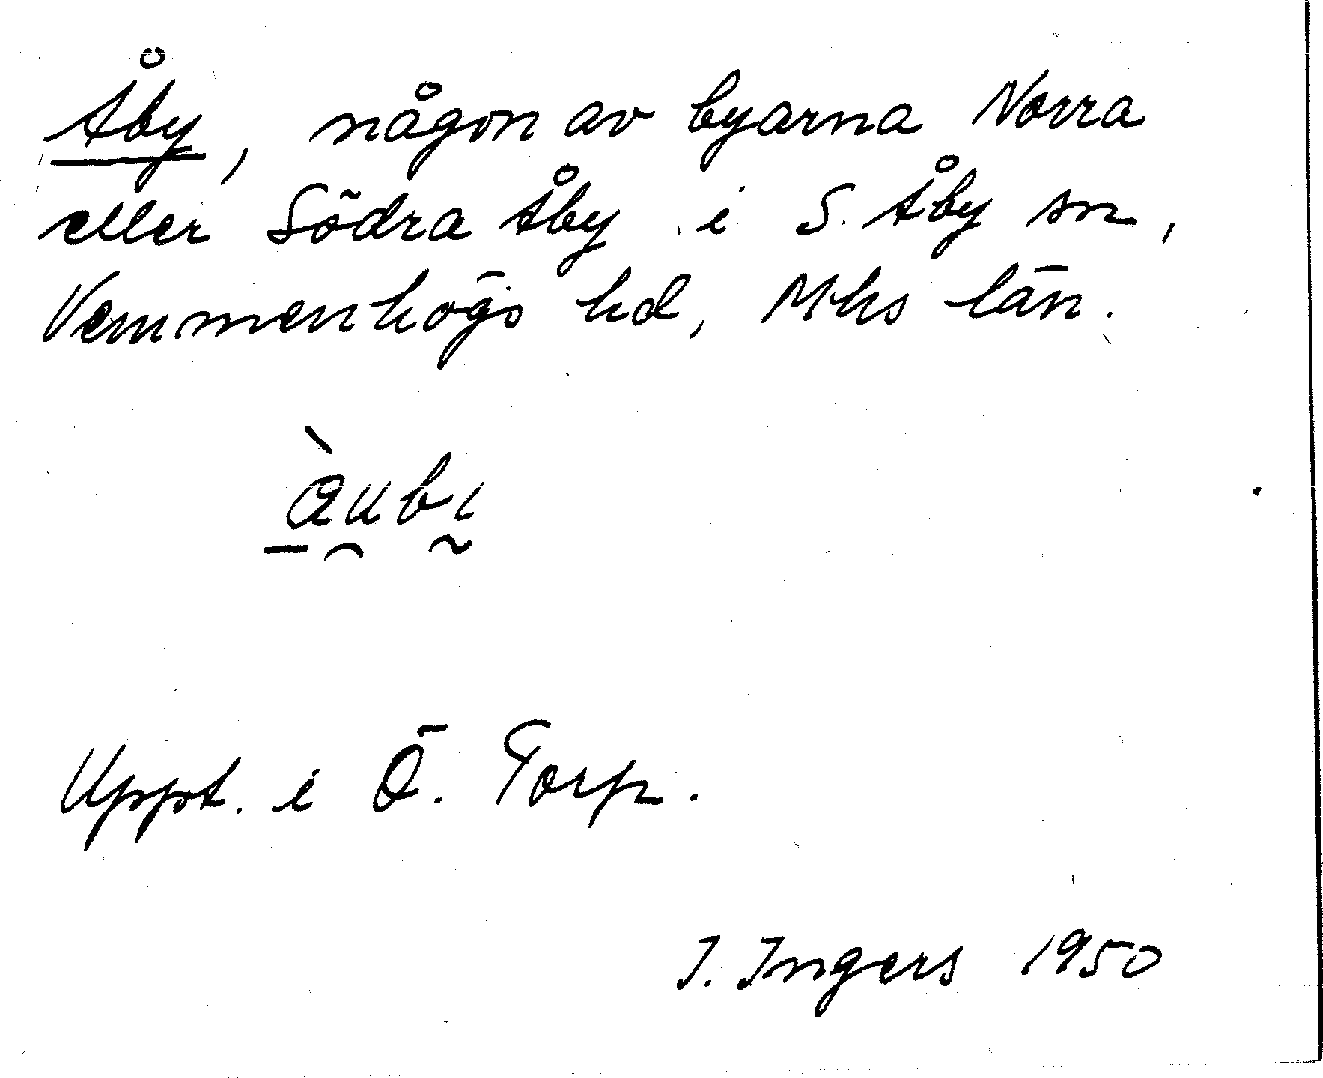 Åby, någon av byarna Norra
eller Södra Åby i S. Åby sn,
Vemmenhögs hd, Mhs län.
àubi
Uppt. i Ö. Torp.
I. Ingers 1950